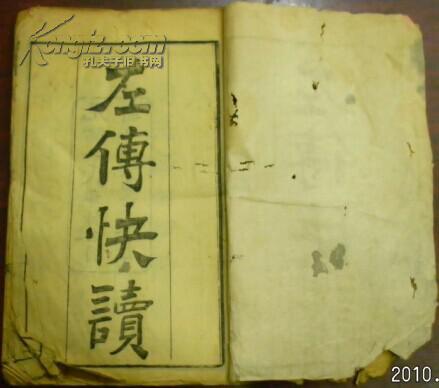 Kongfz.com
孔夫子旧书网
左傳快讀
2010.